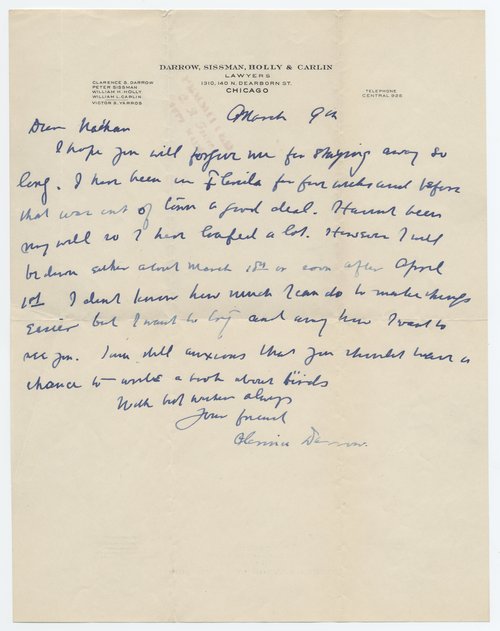 DARROW, SISSMAN, HOLLY & CARLIN
LAWYERS
1310, 140 N. DEARBORN ST.
CHICAGO
CLARENCE S. DARROW
PETER SISSMAN
WILLIAM H. HOLLY
WILLIAM L. CARLIN
VICTOR S. YARROS
TELEPHONE
CENTRAL 925
March 9th
Dear Nathan
I hope you will forgive me for staying away so
long. I have been in Florida for four weeks and before
that was out of town a good deal. Havent been
very well so I have loafed a lot. However I will
be down either about March 18th or soon after April
1st I dont know how much I can do to make things
easier but I want to try and any how I want to
see you. I am still anxious that you should have a
chance to write a book about birds
With best wishes always
Your friend
Clarence Darrow.